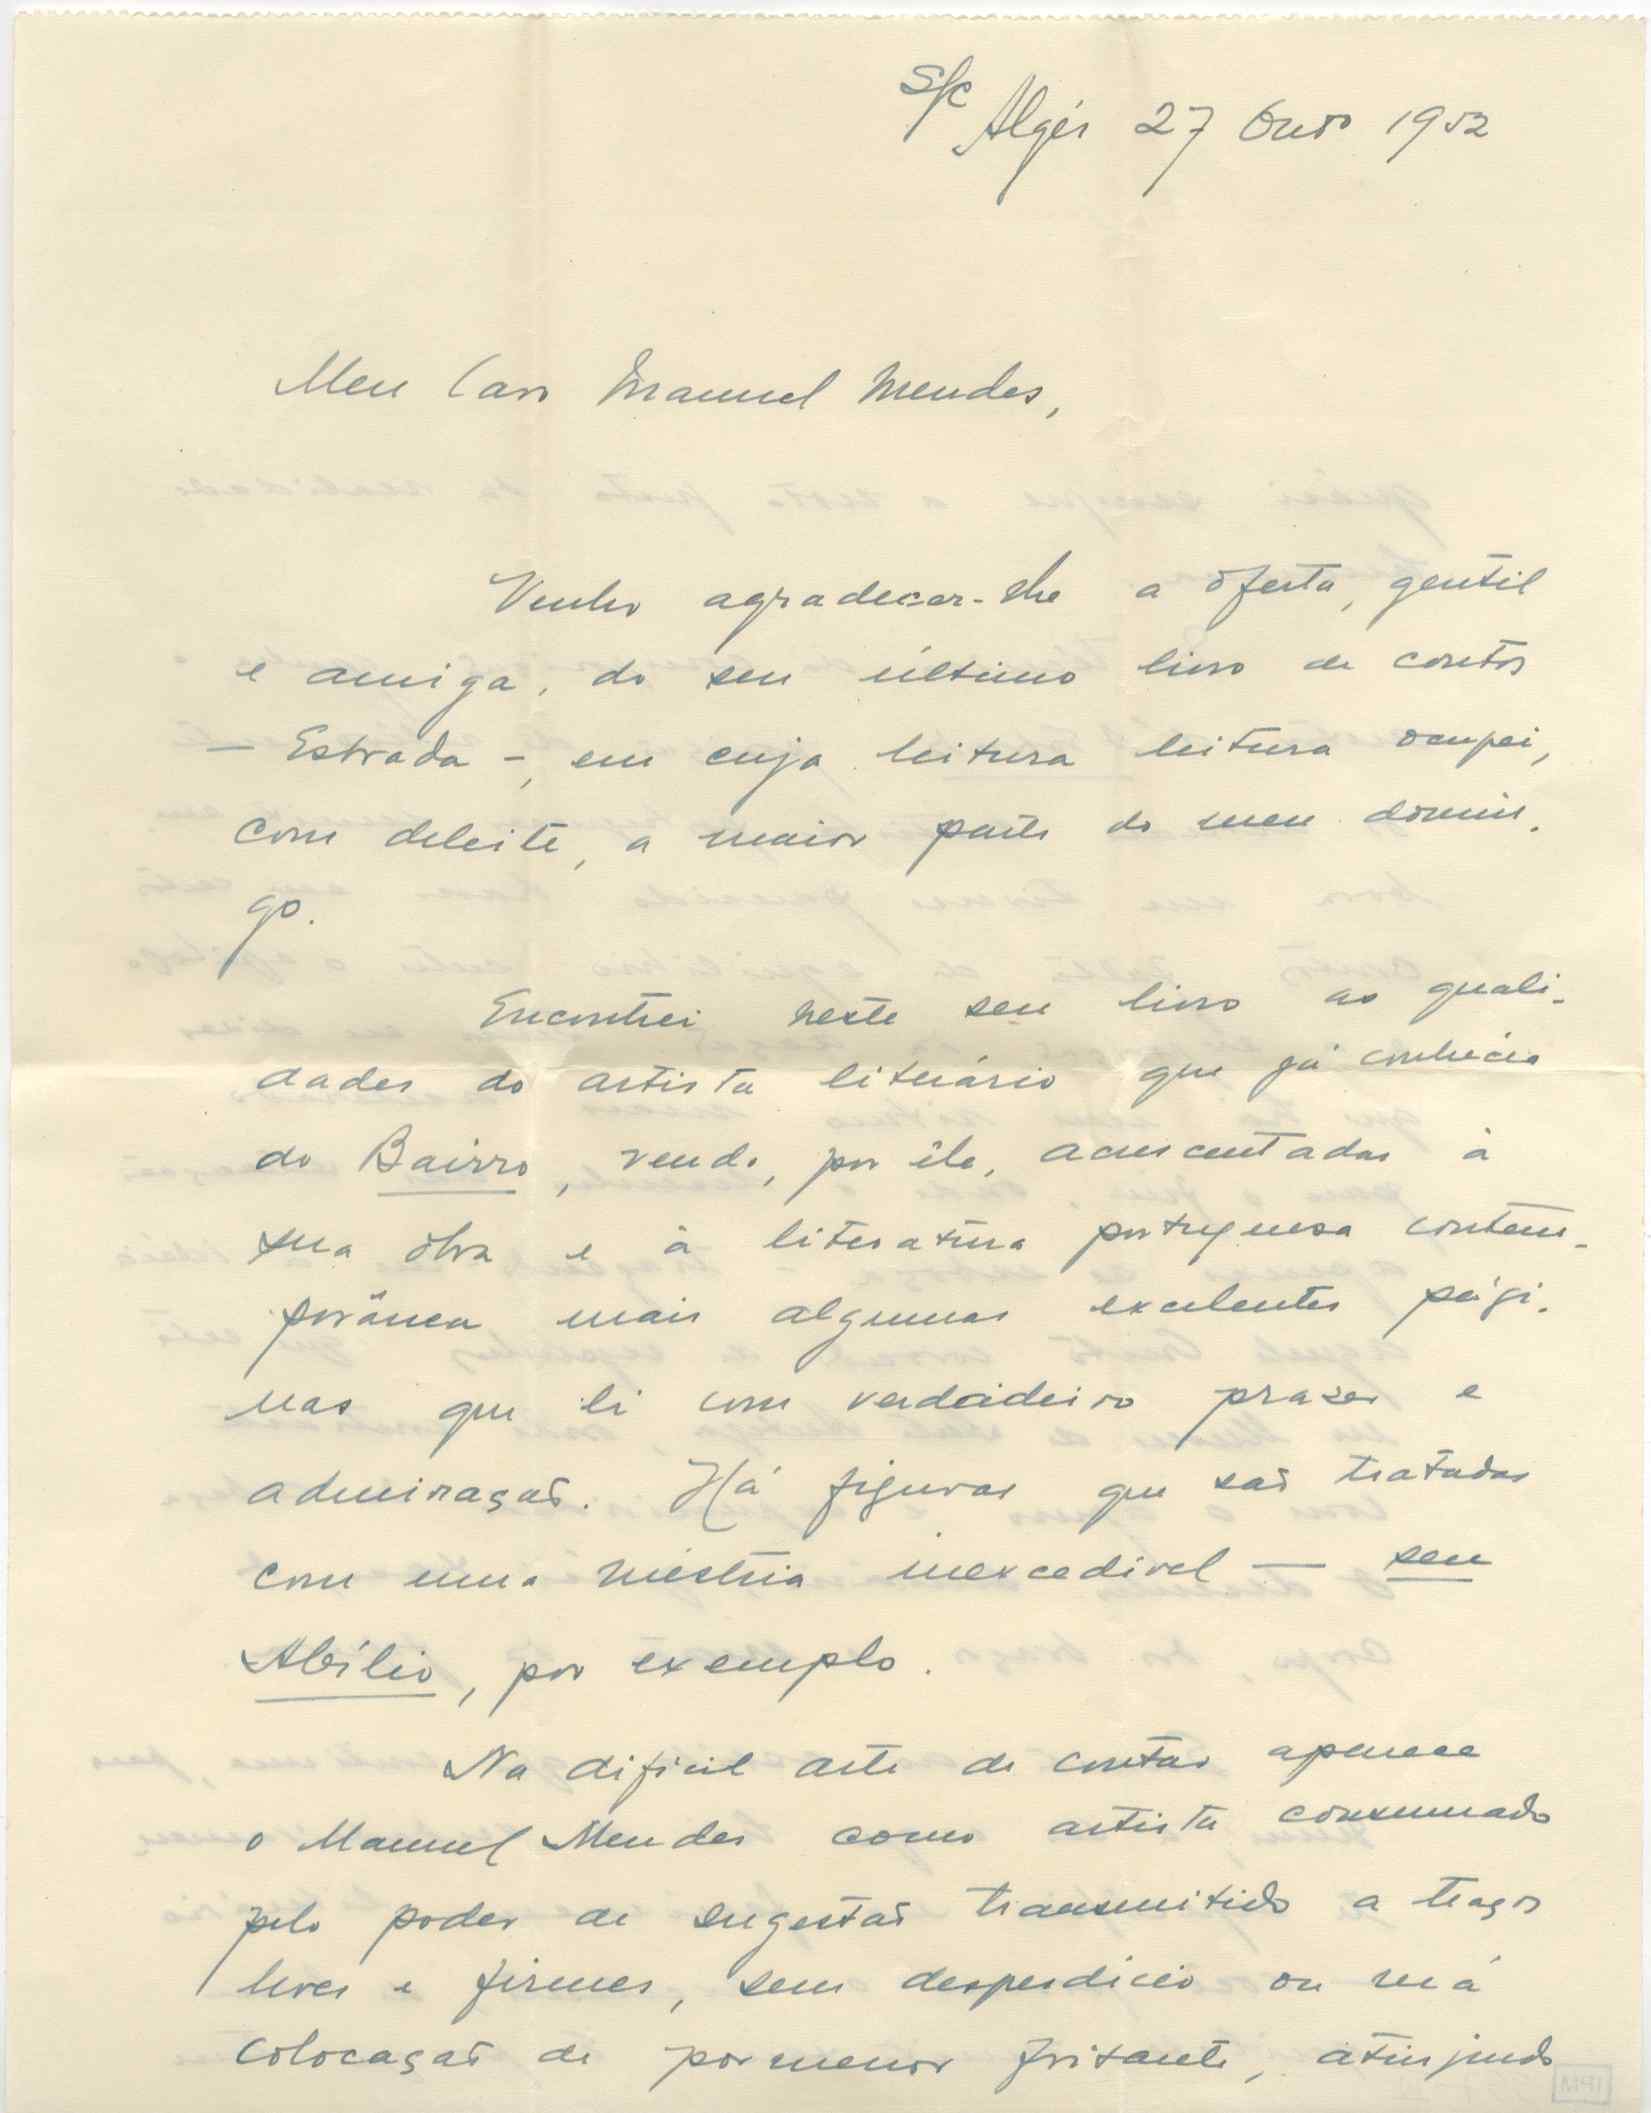 S/c Algés 27 Outo 1952
Meu Caro Manuel Mendes,
Venho agradecer-lhe a oferta, gentil
e amiga, do seu último livro de contos
— Estrada —, em cuja leitura leitura ocupei,
com deleite, a maior parte do meu domin-
go.
Encontrei neste seu livro as quali-
dades do artista literário que já conhecia
do Bairro, vendo, por êle, acrescentadas à
sua obra e à literatura portuguesa contem-
porânea mais algumas excelentes pági-
nas que li com verdadeiro prazer e
admiração. Há figuras que são tratadas
com uma mestria inexcedivel — seu
Abílio, por exemplo.
Na dificil arte de contar aparece
o Manuel Mendes como artista consumado
pelo poder de sugestão transmitido a traços
leves e firmes, sem desperdicio ou má
colocação de pormenor frisante, atinjindo